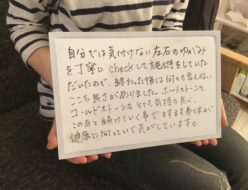 自分では気付けない左右のゆがみ
を丁寧にcheckして施術をしていた
だいたので、終わった後は何とも言えない
ここち良さがありました。ホットストーン
コールドストーンはとても気持ち良く、
このまま続けていく事でますます身体が
健康に向っていく気がしています。